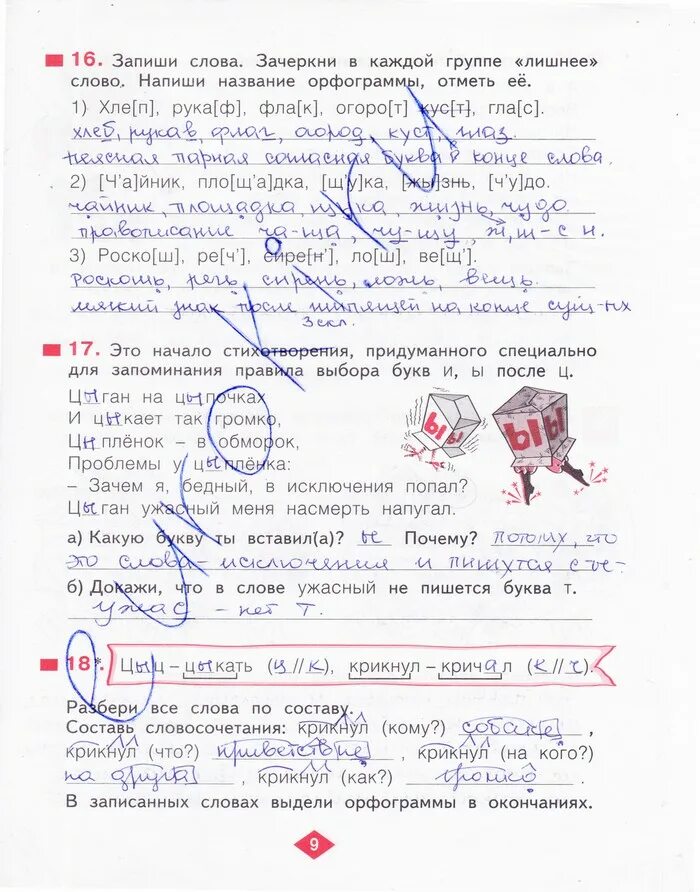 16. Запиши слова. Зачеркни в каждой группе «лишнее»
слово. Напиши название орфограммы, отметь её.
1) Хле[п], рука[ф], фла[к], огоро[т] кус[т], гла[с].
хлеб, рукав, флаг, огород, куст, глаз.
неясная парная согласная буква в конце слова.
2) [Ч'а]йник, пло[щ'а]дка, [щ'у]ка, [жы]знь, [ч'у]до.
чайник, площадка, щука, жизнь, чудо.
правописание ча-ща, чу-щу ж, ш - с и.
3) Роско[ш], ре[ч'], сире[н'], ло[ш], ве[щ'].
роскошь, речь, сирень, ложь, вещь.
мягкий знак после шипящей на конце сущ-ых
3 скл.
17. Это начало стихотворения, придуманного специально
для запоминания правила выбора букв и, ы после ц.
Цыган на цыпочках
И цыкает так громко,
Цыплёнок – в обморок,
Проблемы у цыплёнка:
– Зачем я, бедный, в исключения попал?
Цыган ужасный меня насмерть напугал.
Ы Ы Ы Ы
а) Какую букву ты вставил(а)? ы Почему? Потому, что
это слова - исключения и пишутся с ы -
б) Докажи, что в слове ужасный не пишется буква т.
ужас - нет т.
18*. Цыц – цыкать (ц // к), крикнул – кричал (к // ч).
Разбери все слова по составу.
Составь словосочетания: крикнул (кому?) собаке ,
крикнул (что?) приветствие , крикнул (на кого?)
на друга , крикнул (как?) громко .
В записанных словах выдели орфограммы в окончаниях.
9